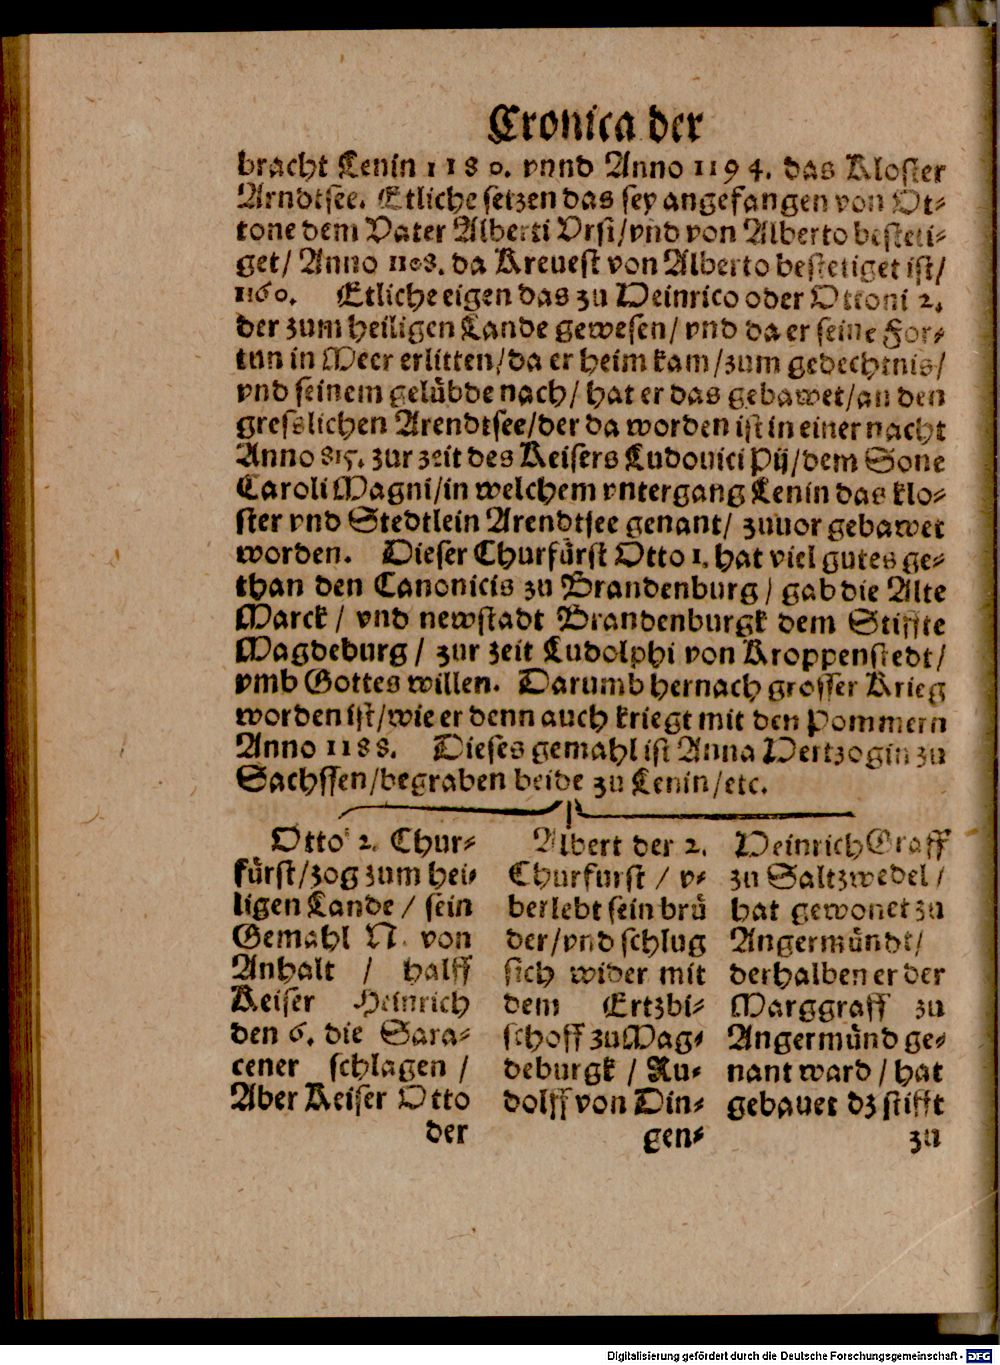 Cronica der
bracht Lenin 1180. vnnd Anno 1194. das Kloster
Arndtsee. Etliche setzen das sey angefangen von Ot-
tone dem Vater Alberti Vrsi/vnd von Alberto besteti-
get/ Anno 1108. da Kreuest von Alberto bestetiget ist/
1160. Etliche eigen das zu Heinrico oder Ottoni 2.
der zum heiligen Lande gewesen/ vnd da er seine For-
tun in Meer erlitten/da er heim kam/zum gedechtnis/
vnd seinem gelübde nach/ hat er das gebawet/an den
gresslichen Arendtsee/der da worden ist in einer nacht
Anno 815. zur zeit des Keisers Ludouici Pij/dem Sone
Caroli Magni/in welchem vntergang Lenin das klo-
ster vnd Stedtlein Arendtsee genant/ zuuor gebawet
worden. Dieser Churfürst Otto 1. hat viel gutes ge-
than den Canonicis zu Brandenburg / gab die Alte
Marck / vnd newstadt Brandenburgk dem Stiffte
Magdeburg / zur zeit Ludolphi von Kroppenstedt/
vmb Gottes willen. Darumb hernach grosser Krieg
worden ist/wie er denn auch kriegt mit den Pommern
Anno 1188. Dieses gemahl ist Anna Hertzogin zu
Sachssen/begraben beide zu Lenin/etc.
Otto 2. Chur-
fürst/zog zum hei-
ligen Lande / sein
Gemahl N. von
Anhalt / halff
Keiser Heinrich
den 6. die Sara-
cener schlagen /
Aber Keiser Otto
der
Albert der 2.
Churfurst / v-
berlebt sein brü
der/vnd schlug
sich wider mit
dem Ertzbi-
schoff zu Mag-
deburgk / Ru-
dolff von Din-
gen-
Heinrich Graff
zu Saltzwedel /
hat gewonet zu
Angermündt/
derhalben er der
Marggraff zu
Angermünd ge-
nant ward / hat
gebauet dz stifft
zu
Digitalisierung gefördert durch die Deutsche Forschungsgemeinschaft - DFG